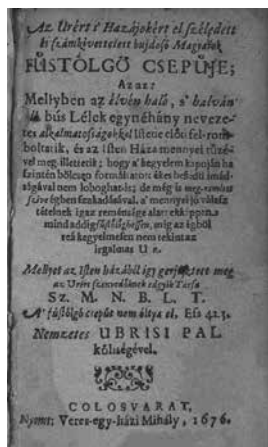 Az Urért s' Hazájokért el széledett
és számkivettetett bujdosó Magyarok
FÜSTÖLGŐ CSEPÜJE;
Azaz:
Mellyben az élvén haló, s' halván
élő bús Lélek egynéhány neveze-
tes alkalmatosságokkal Istene előtt fel-rom-
boltatik, és az Isten Háza mennyei tüzé-
vel meg-illettetik; hogy a' kegyelem kapuján ha
szintén bölcsen formáltatott ékes beszédü imád-
ságával nem loboghat-is; de még-is
szive égben szakadásával, a' mennyei jó válasz
tételnek igaz reménsége alatt
mind addig füstölöghessen, mig az égböl
reá kegyelmesen nem tekint az
irgalmas Ur.
Mellyet az Isten házából igy gerjesztett meg
az Urért szenvedőknek edgyik Társa
Sz. M. N. B. L. T.
A' füstölgő csepüt nem óltya el. Esa 42.3.
Nemzetes UBRISI PAL
költségével.
COLOSVARAT,
Nyomt: Veres-egy-házi Mihály, 1676.